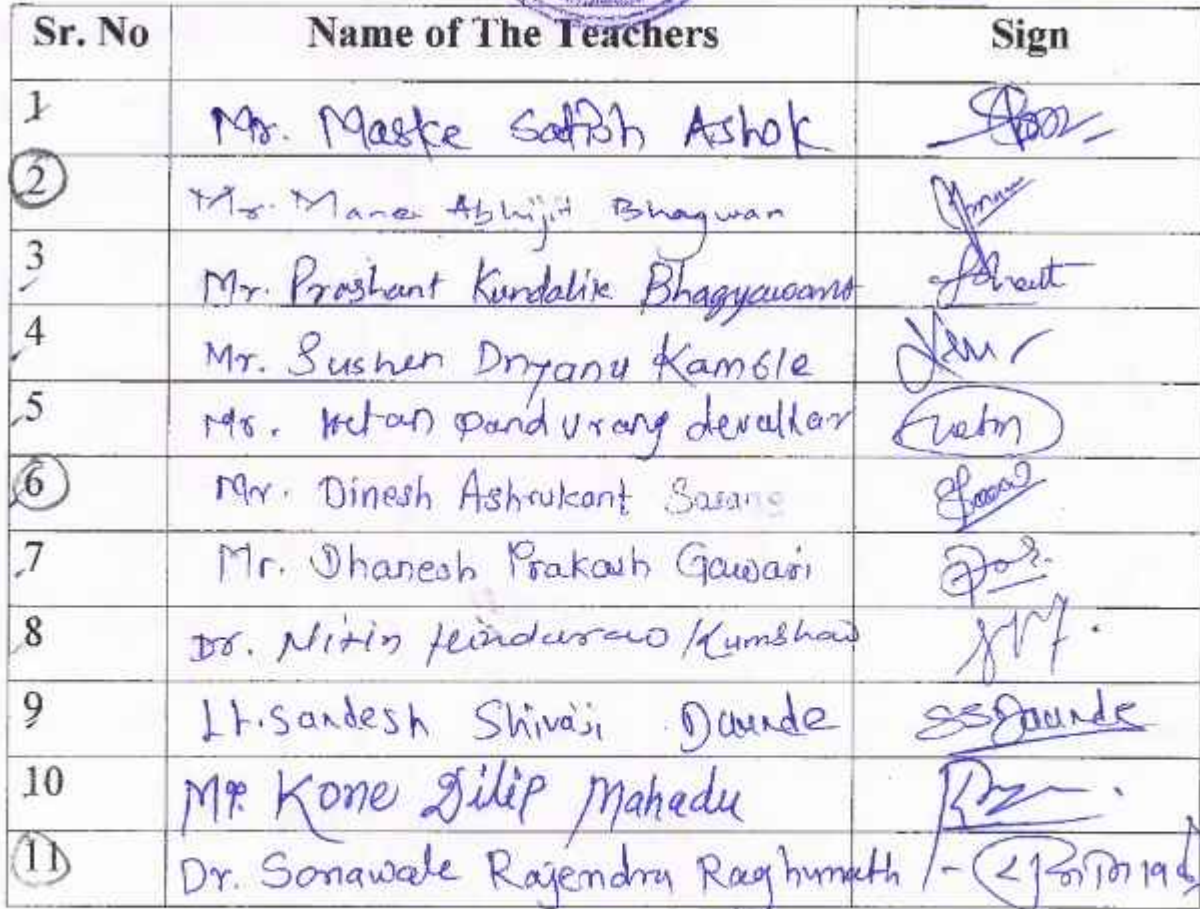 Sr. No Name of The Teachers Sign
1 Mr. Maske Satish Ashok
2 Mr. Mane Abhijit Bhagwan
3 Mr. Prashant Kundalik Bhagyawant
4 Mr. Sushen Dnyanu Kamble
5 Mr. Ketan Pandurang devalkar
6 Mr. Dinesh Ashrukant Sarang
7 Mr. Dhanesh Prakash Gawari
8 Dr. Nitin Hindurao Kumbhar
9 Lt. Sandesh Shivaji Daunde SSDaunde
10 Mr. Kone Dilip Mahadu
11 Dr. Sonawale Rajendra Raghunath